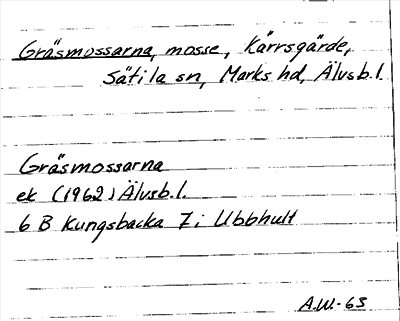 Gräsmossarna, mosse, Kärrsgärde,
Sätila sn, Marks hd, Älvsb.l.
Gräsmossarna
ek (1962) Älvsb.l.
6 B Kungsbacka 7i Ubbhult
A.W.-63